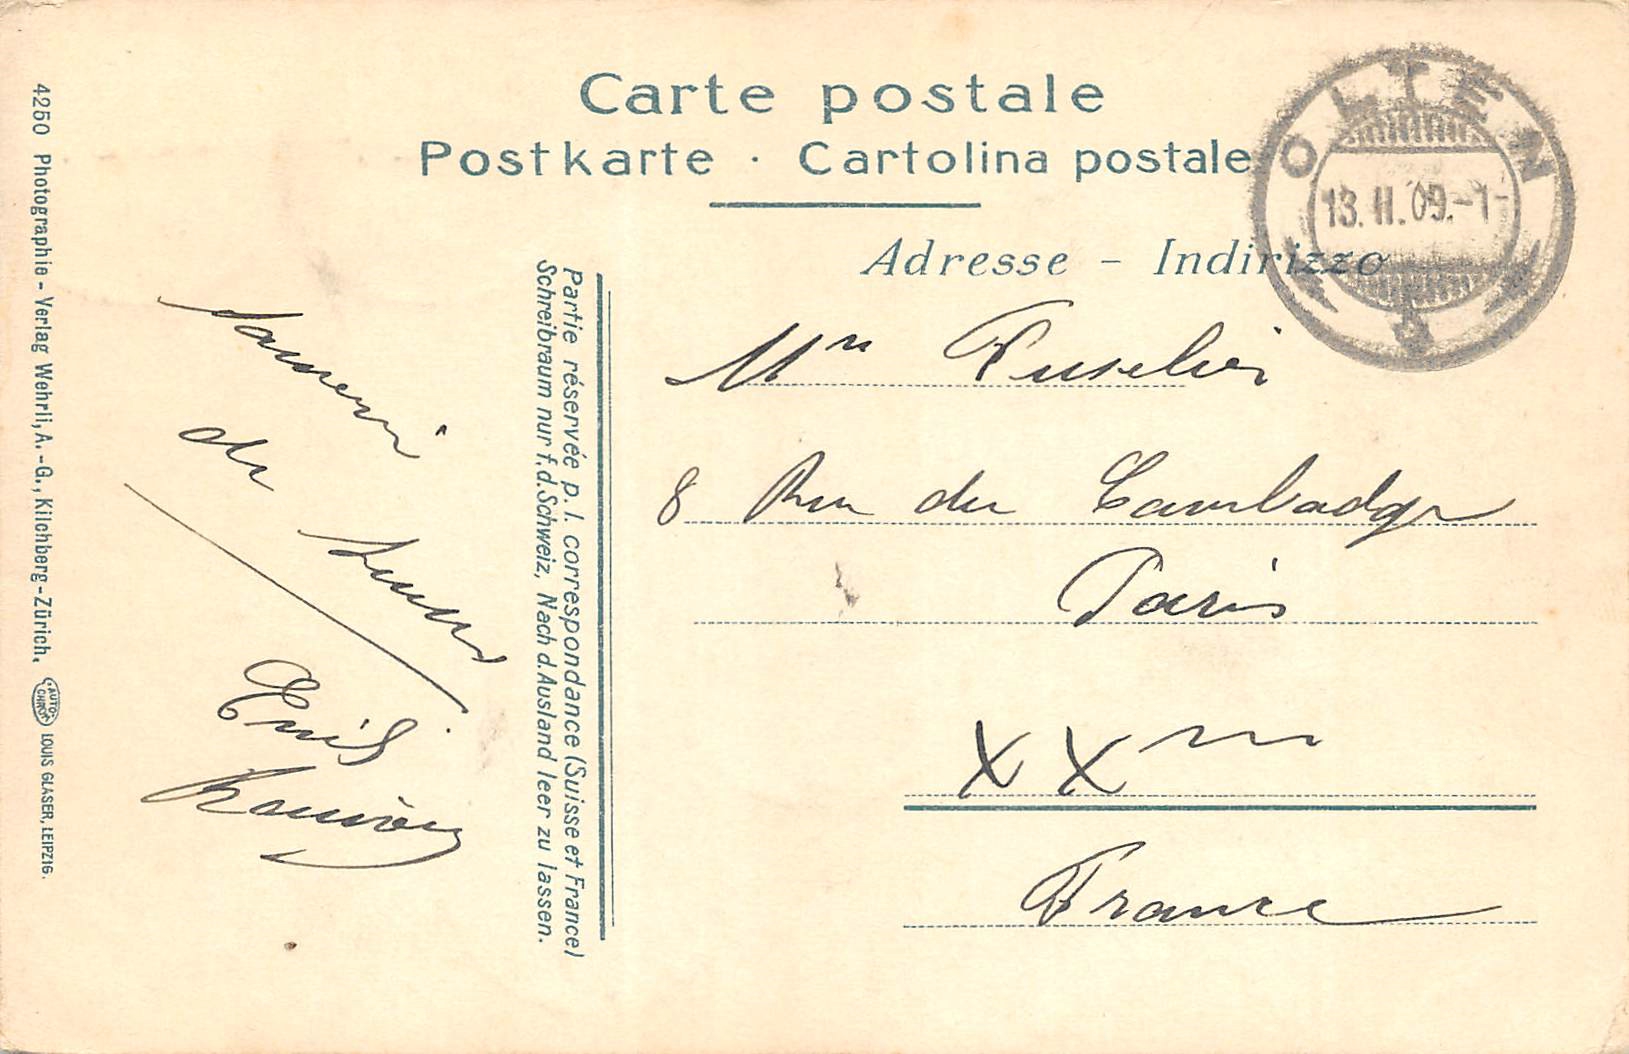 Carte postale
Postkarte · Cartolina postale
Adresse - Indirizzo
OLTEN
13. II. 09.-1-
8 Rue du
Paris
XXm
France
Partie réservée p. l. correspondance (Suisse et France)
Schreibraum nur f. d. Schweiz, Nach d. Ausland leer zu lassen.
de
Emil
4250 Photographie-Verlag Wehrli, A.-G., Kilchberg-Zürich.
AUTO-CHROM
LOUIS GLASER, LEIPZIG.